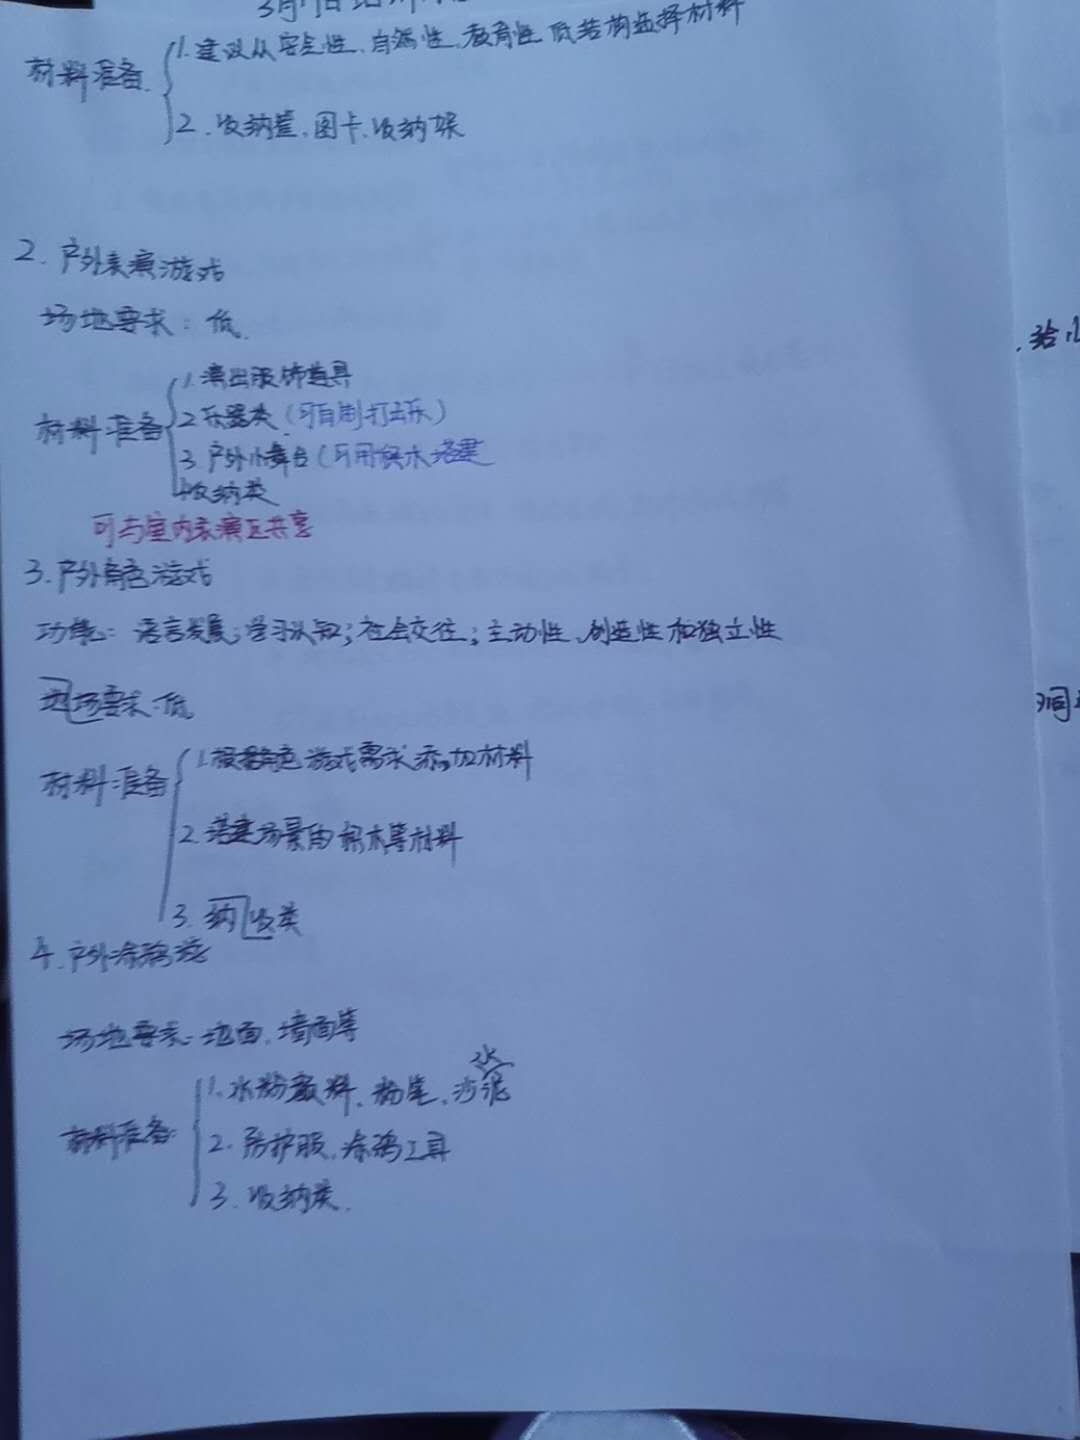 材料准备
1.建议从安全性、自然性、教育性 低结构选择材料
2.收纳筐、图卡、收纳架
2.户外表演游戏
场地要求:低.
材料准备
1.演出服饰道具
2.乐器类(可自制打击乐)
3.户外小舞台(可用积木搭建
4收纳类
可与室内表演区共享
3.户外角色游戏
功能:语言发展;学习认知;社会交往;主动性、创造性和独立性
地场要求:低
材料准备
1.根据角色游戏需求添加材料
2.搭建场景的积木等材料
3.纳收类
4.户外涂鸦游
场地要求:地面、墙面等
材料准备:
1.水粉颜料、粉笔、沙泥
水
2.防护服、涂鸦工具
3.收纳类.